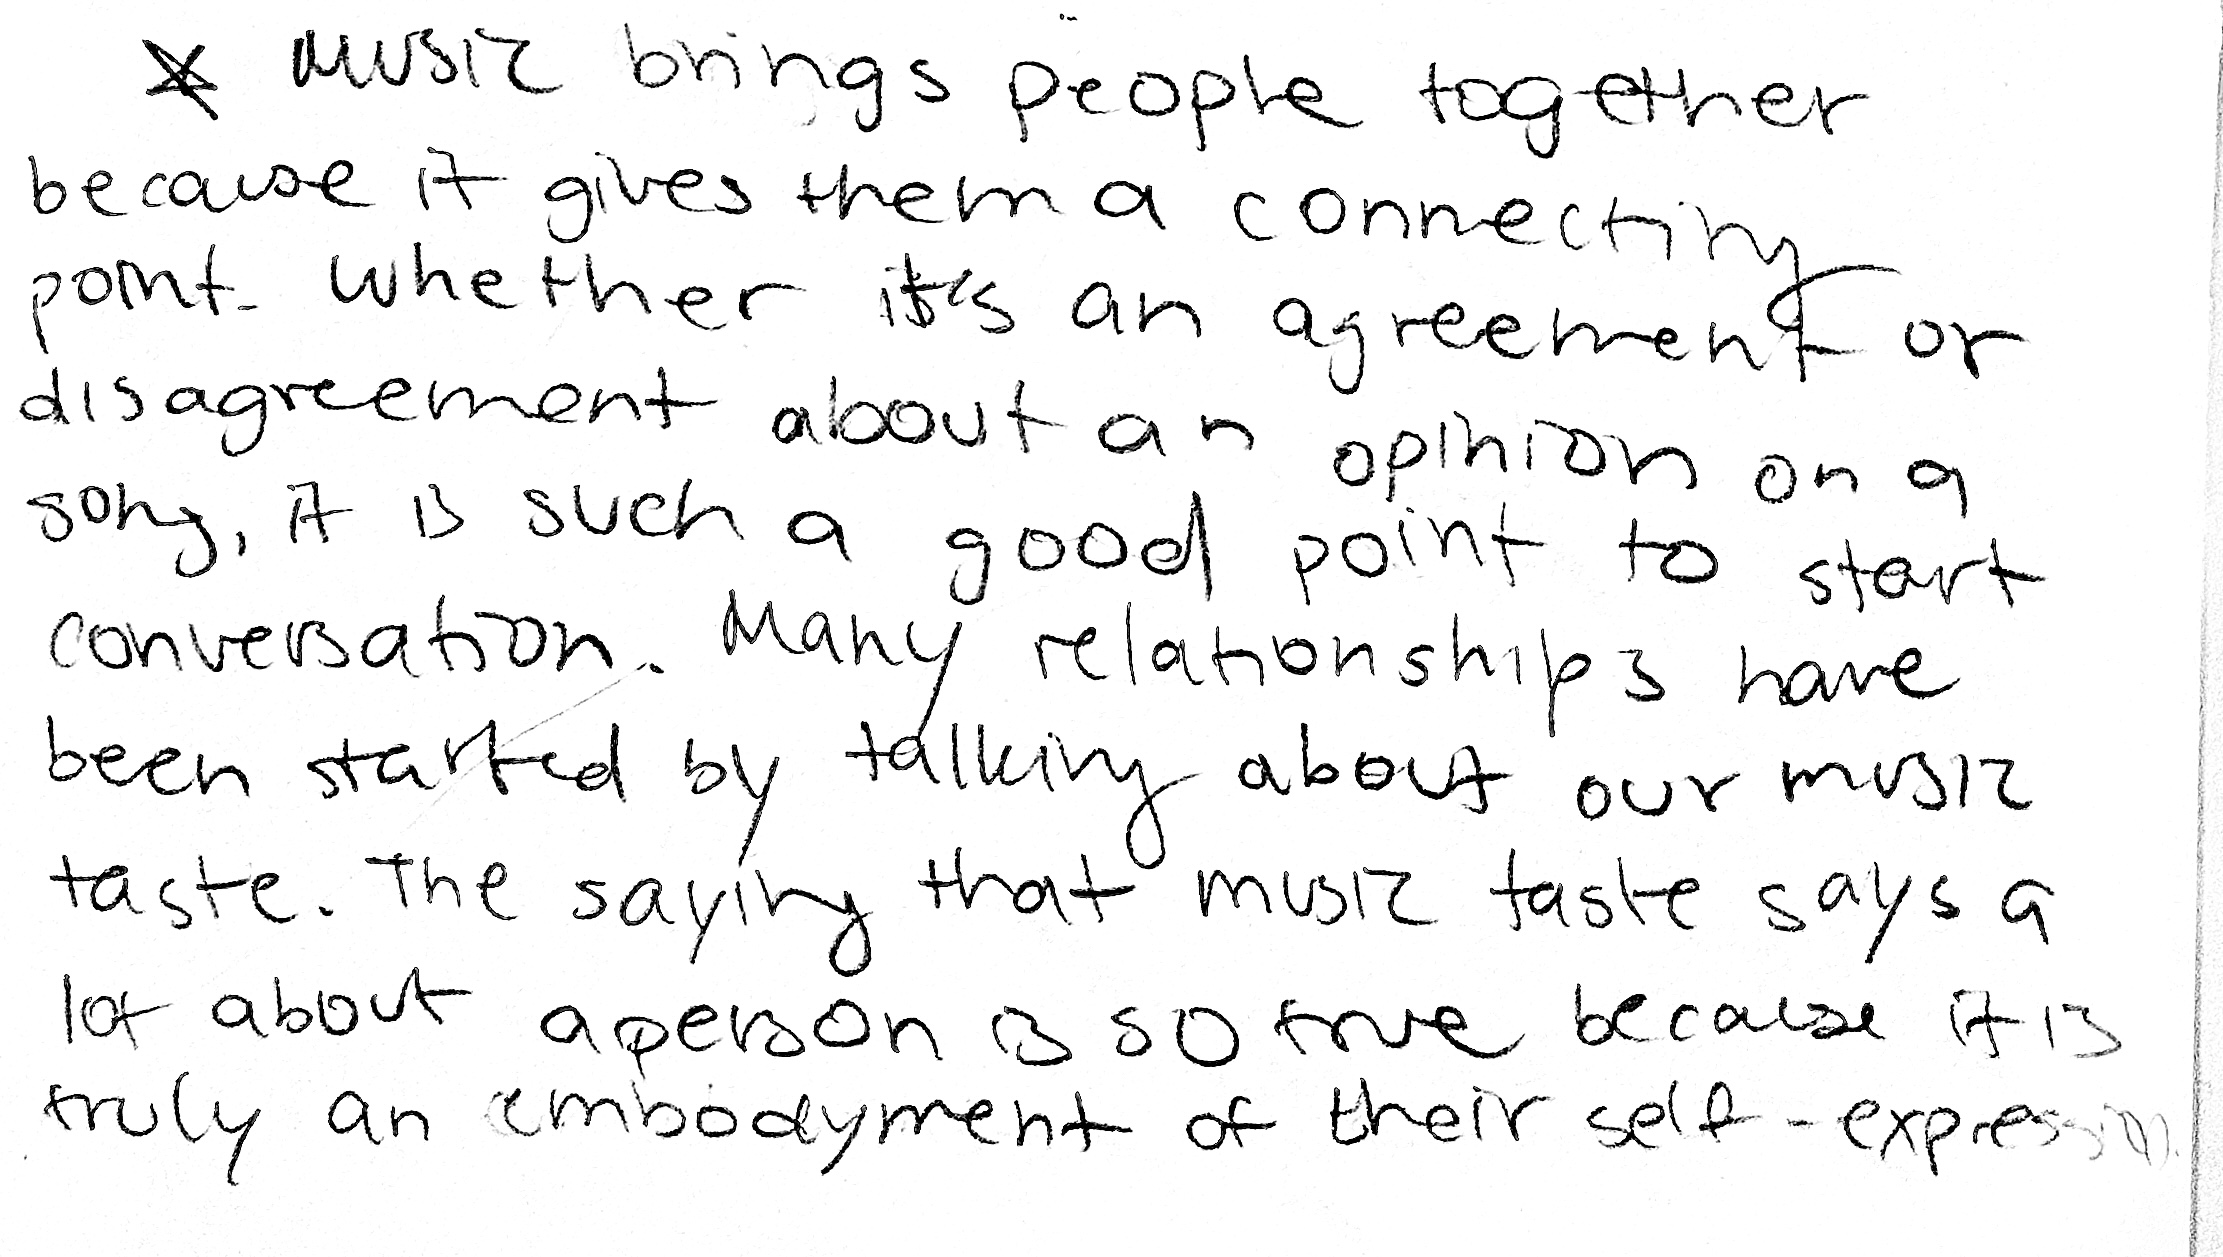 * Music brings people together
because it gives them a connecting
point. Whether it's an agreement or
disagreement about an opinion on a
song, it is such a good point to start
conversation. Many relationships have
been started by talking about our music
taste. The saying that music taste says a
lot about a person is so true because it is
truly an embodyment of their self-expression.